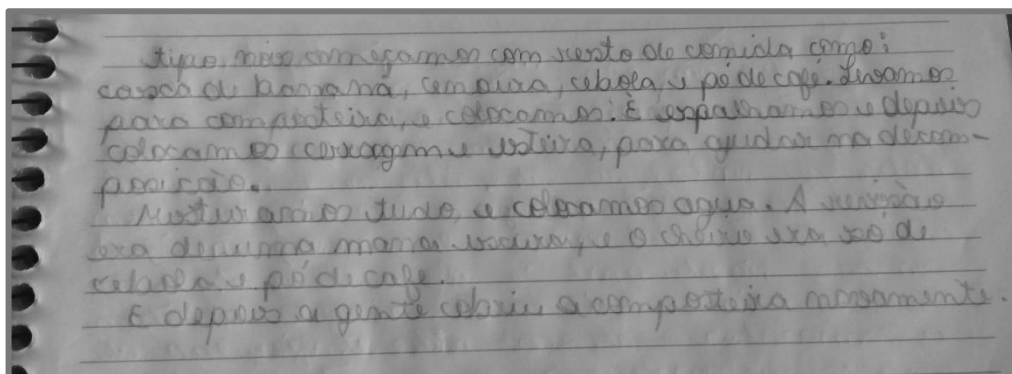 tipo, nois começamos com resto de comida, como:
casca de banana, cenoura, cebola, e pó de café. Levamos
para composteira, e colocamos. E espalhamos e depois
colocamos serragem e esteira, para ajudar na decom-
posição.
Misturamos tudo, e colocamos agua. A sensação
era de uma massa escura, e o cheiro era só de
cebola e pó de cafe.
E depois a gente cobriu a composteira novamente.